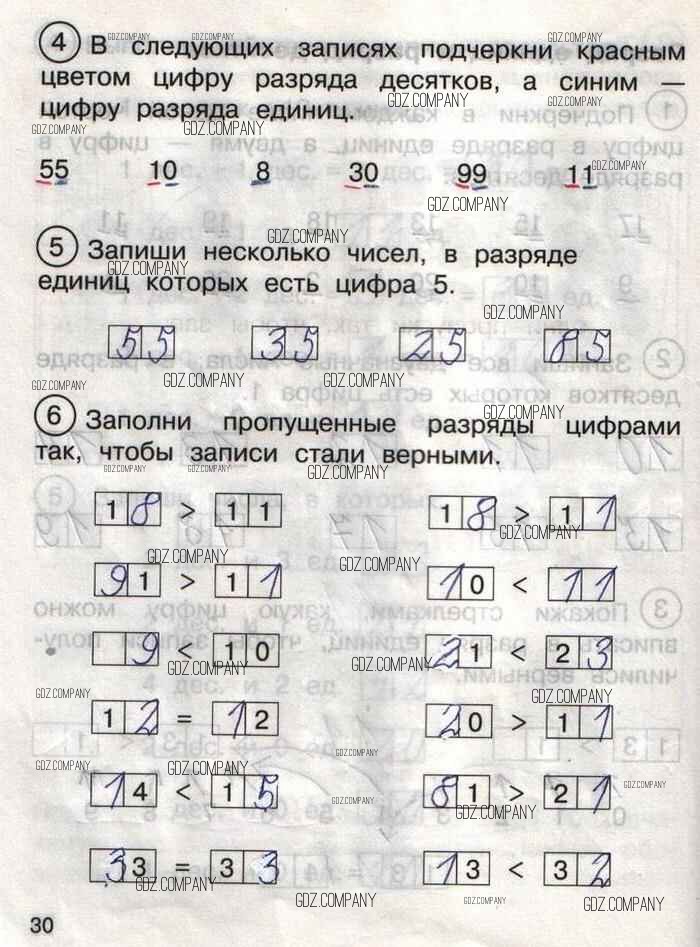 4 В следующих записях подчеркни красным
цветом цифру разряда десятков, а синим —
цифру разряда единиц.
55 10 8 30 99 11
5 Запиши несколько чисел, в разряде
единиц которых есть цифра 5.
55 35 25 85
6 Заполни пропущенные разряды цифрами
так, чтобы записи стали верными.
18 > 11 18 > 11
91 > 11 10 < 11
9 < 10 21 < 23
12 = 12 20 > 11
14 < 15 81 > 21
33 = 33 13 < 32
30
GDZ.COMPANY